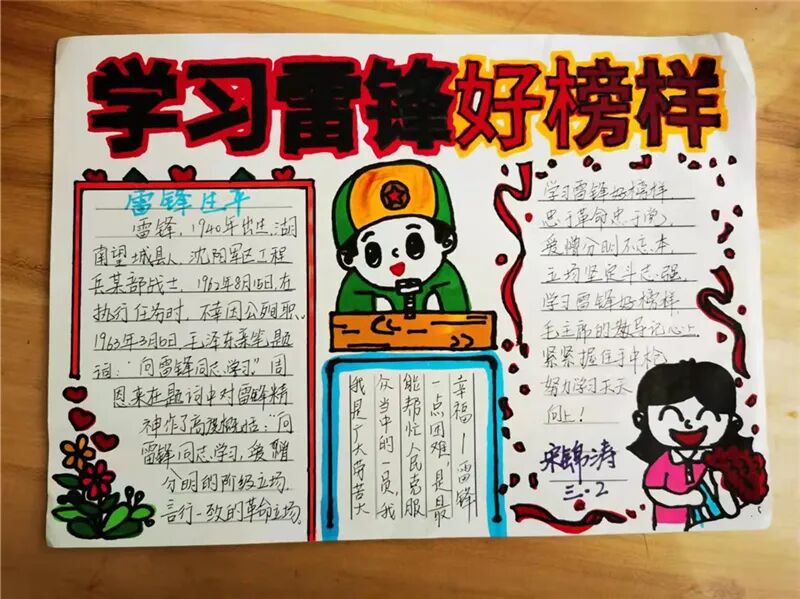 学习雷锋好榜样
雷锋生平
雷锋，1940年出生，湖
南望城县人，沈阳军区工程
兵某部战士，1962年8月15日，在
执行任务时，不幸因公殉职。
1963年3月5日，毛泽东亲笔题
词：“向雷锋同志学习”周
恩来在题词中对雷锋精
神作了高度概括：“向
雷锋同志学习，爱憎
分明的阶级立场.
言行一致的革命立场.
我是广大劳苦大
众当中的一员，我
能帮忙人民克服
一点困难，是最
幸福—雷锋
学习雷锋好榜样
忠于革命忠于党，
爱憎分明不忘本，
立场坚定斗志强，
学习雷锋好榜样，
毛主席的教导记心上
紧紧握住手中枪，
努力学习天天
向上！
宋锦涛
三.2